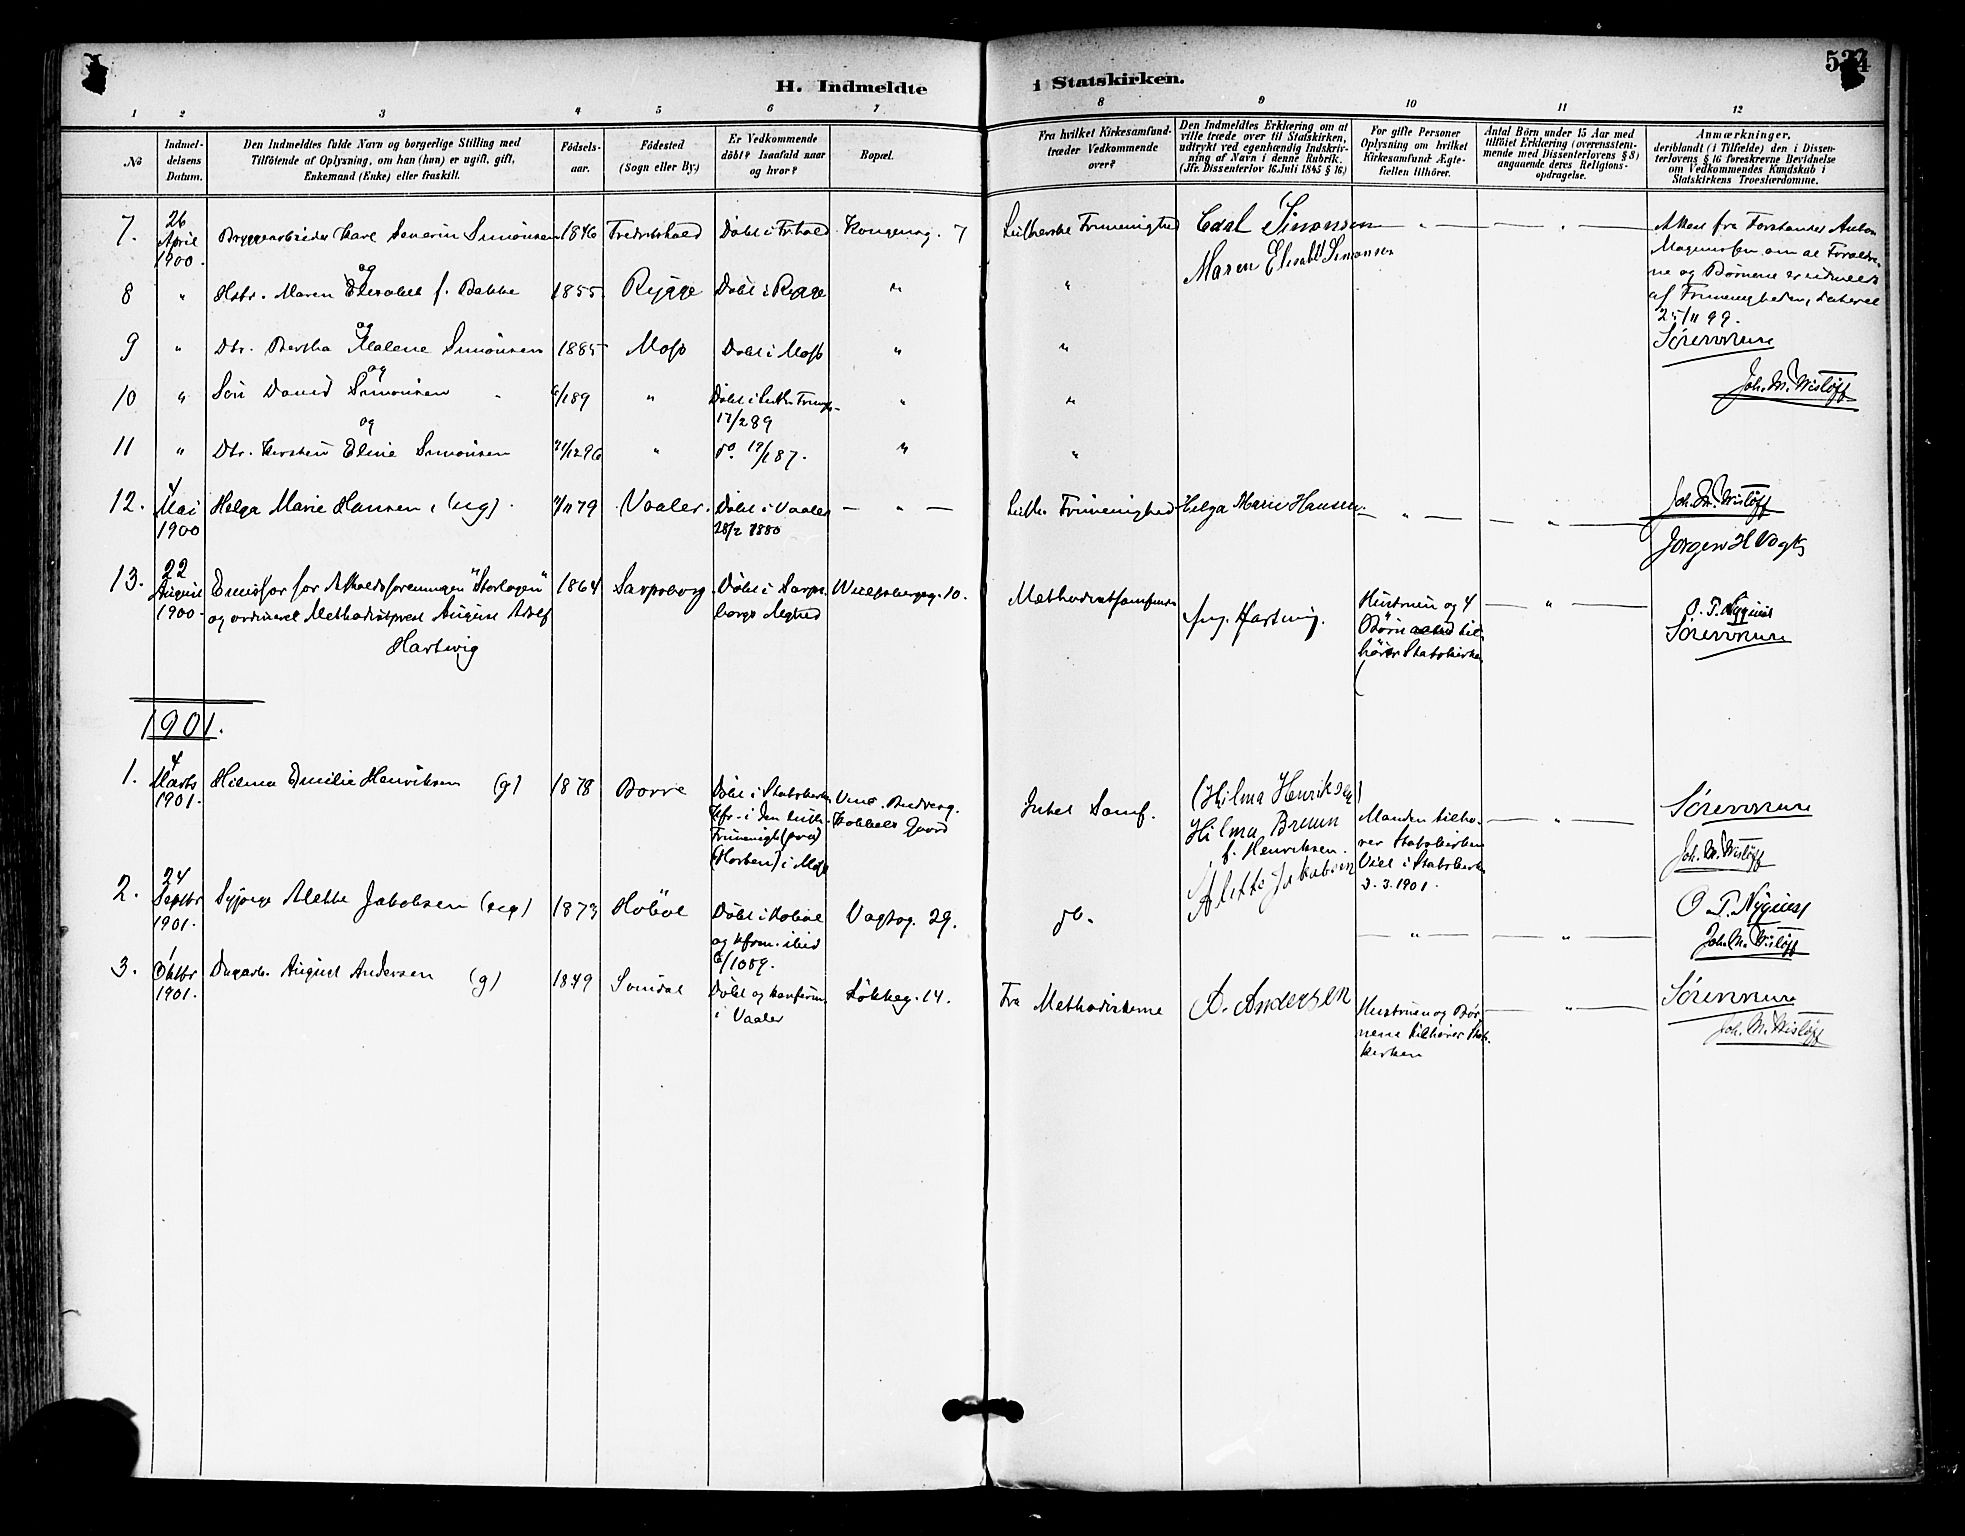 534
H. Indmeldte
i Statskirken.
1 2 3 4 5 6 7
8 9 10 11 12
No
Indmel-
delsens
Datum.
Den Indmeldtes fulde Navn og borgerlige Stilling med
Tilföiende af Oplysning, om han (hun) er ugift, gift,
Enkemand (Enke) eller fraskilt.
Födsels-
aar.
Födested
(Sogn eller By.)
Er Vedkommende
döbt? Isaafald naar
og hvor?
Bopæl.
Fra hvilket Kirkesamfund
træder Vedkommende
over?
Den Indmeldtes Erklæring om at
ville træde over til Statskirken,
udtrykt ved egenhændig Indskriv-
ning af Navn i denne Rubrik.
(Jfr. Dissenterlov 16 Juli 1845 § 16)
For gifte Personer
Oplysning om hvilket
Kirkesamfund Ægte-
fællen tilhörer.
Antal Börn under 15 Aar med
tilföiet Erklæring (overensstem-
mende med Dissenterlovens § 8)
angaaende deres Religions-
opdragelse.
Anmærkninger,
deriblandt (i Tilfælde) den i Dissen-
terlovens § 16 foreskrevne Bevidnelse
om Vedkommendes Kundskab i
Statskirkens Troeslærdomme.
7.
26
April
1900.
Bryggearbeider Karl Severin Simonsen
1846
Fredrikshald
Döbt i Frhald
Kongensg. 7
Lutherske Frimenighed
Carl Simonsen
Attest fra Forstander Anton
Magnussen om at Foræld-
rene og Börnene er udmeldt
af Frimenigheden, dateret
25/11 99.
Sörensen
Joh. M. Wisløff
8
"
og
Hstr. Maren Elisabet f. Bakke
1855
Rygge
Döbt i Rygge
"
"
Maren Elisabet Simonsen
9
"
og
Dtr. Bertha Malene Simonsen
1885
Moss
Döbt i Moss
"
"
10
"
og
Sön David Simonsen
"
"
"
17/2 89
11
"
og
Dtr. Kirsten Eline Simonsen
"
do.
"
"
12.
4
Mai
1900
Helga Marie Hansen, (ug).
Vaaler.
Döbt i Vaaler
28/2 1880
— " —
Luth. Frimenighed
Helga Marie Hansen.
— " —
— " —
Joh. M. Wisløff
Jørgen H Vogt
13.
22
August
1900.
Emissær for Afholdsforeningen "Storlogen"
og ordineret Methodistprest August Adolf
Hartwig
1864
Sarpsborg.
Döbt i Sarps-
borgs Mghed
10.
Methodistsamfundet
Aug. Hartwig.
Hustruen og 4
Börn til-
hörer Statskirken
— " —
O. T. Nyquist
Sörensen
1901.
1.
4
Marts
1901.
Hilma Emilie Henriksen (g)
1878
Borre
Döbt i Statskirken
Kfr. i den luth.
Frimenigh.
(Horten) i Moss
Gaard
Intet Samf.
(Hilma Henriksen)
Hilma Bruun
f. Henriksen.
Manden tilhö-
rer Statskirken
Viet i Statskirken
3.3.1901.
— " —
Sörensen
Joh. M. Wisløff
2.
24
Septbr
1901.
Sypige Alette Jakobsen (ug)
1873
Hoböl
Döbt i Hoböl
og kfrm. ibid
6/10 89.
Vogtsg. 29.
do.
Alette Jakobsen
— " —
— " —
O. T. Nyquist
Joh. M. Wisløff
3.
1
Oktbr
1901.
Dagarb. August Andersen (g)
1849
Svindal
Döbt og konfirm.
i Vaaler
Lökkeg. 14.
Fra Methodisterne
A. Andersen
Hustruen og Bör-
nene tilhörer Stats-
kirken
— " —
Sörensen
Joh. M. Wisløff